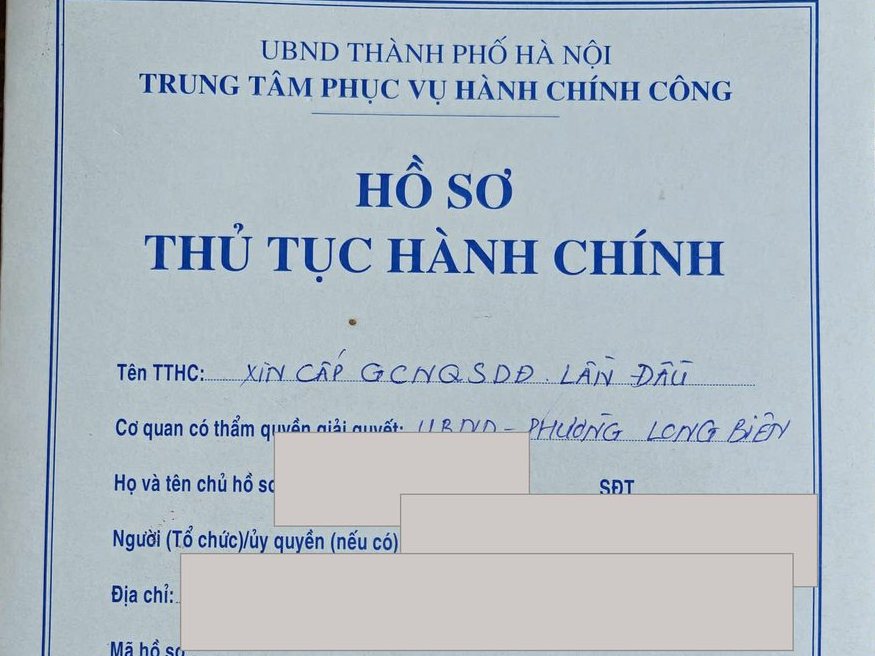 UBND THÀNH PHỐ HÀ NỘI
TRUNG TÂM PHỤC VỤ HÀNH CHÍNH CÔNG
HỒ SƠ
THỦ TỤC HÀNH CHÍNH
Tên TTHC: XIN CẤP GCNQSDĐ. LẦN ĐẦU
Cơ quan có thẩm quyền giải quyết: UBND - PHƯỜNG LONG BIÊN
Họ và tên chủ hồ sơ SĐT
Người (Tổ chức)/ủy quyền (nếu có)
Địa chỉ:
Mã hồ sơ